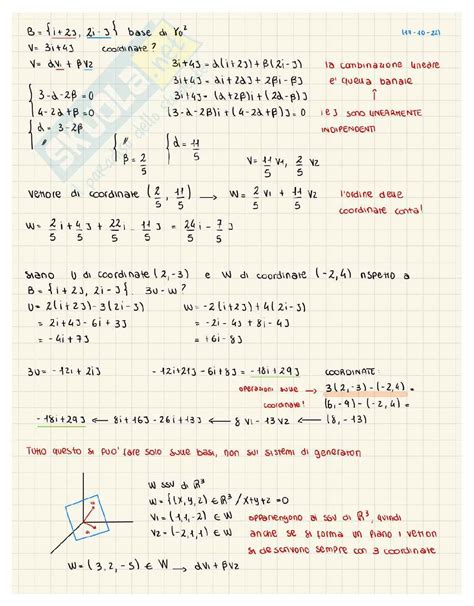 B = {i+2j, 2i-j} base di V₀² (17-10-22)
V = 3i+4j coordinate?
V = αV₁ + βV₂
3i+4j = α(i+2j) + β(2i-j)
3i+4j = αi + 2αj + 2βi - βj
3i+4j = (α+2β)i + (2α-β)j
(3-α-2β)i + (4-2α+β)j = 0
la combinazione lineare
e' quella banale
↑
i e j sono LINEARMENTE
INDIPENDENTI
{ 3-α-2β = 0
4-2α+β = 0
{ α = 3-2β
{ // β = 2/5
{ α = 11/5 //
V = 11/5 V₁, 2/5 V₂
Vettore di coordinate (2/5, 11/5) → W = 2/5 V₁ + 11/5 V₂
l'ordine delle
coordinate conta!
W = 2/5 i + 4/5 j + 22/5 i - 11/5 j = 24/5 i - 7/5 j
siano U di coordinate (2,-3) e W di coordinate (-2,4) rispetto a
B = {i+2j, 2i-j}. 3U-W?
U = 2(i+2j) - 3(2i-j) W = -2(i+2j) + 4(2i-j)
= 2i+4j - 6i + 3j = -2i - 4j + 8i - 4j
= -4i + 7j = +6i - 8j
3U = -12i + 21j -12i+21j - 6i+8j = -18i+29j COORDINATE:
operazioni sulle → 3(2,-3) - (-2,4) =
coordinate! (6,-9) - (-2,4) =
-18i+29j ← 8i+16j - 26i + 13j ← 8V₁ - 13V₂ ← (8,-13)
Tutto questo si puo' fare solo sulle basi, non sui sistemi di generatori
W SSV di ℝ³
W = {(x,y,z) ∈ ℝ³ / x+y+z = 0
V₁ = (1,1,-2) ∈ W
V₂ = (-2,1,1) ∈ W
appartengono ai ssv di ℝ³, quindi
anche se si forma un piano i vettori
si descrivono sempre con 3 coordinate
W = (3,2,-5) ∈ W → αV₁ + βV₂